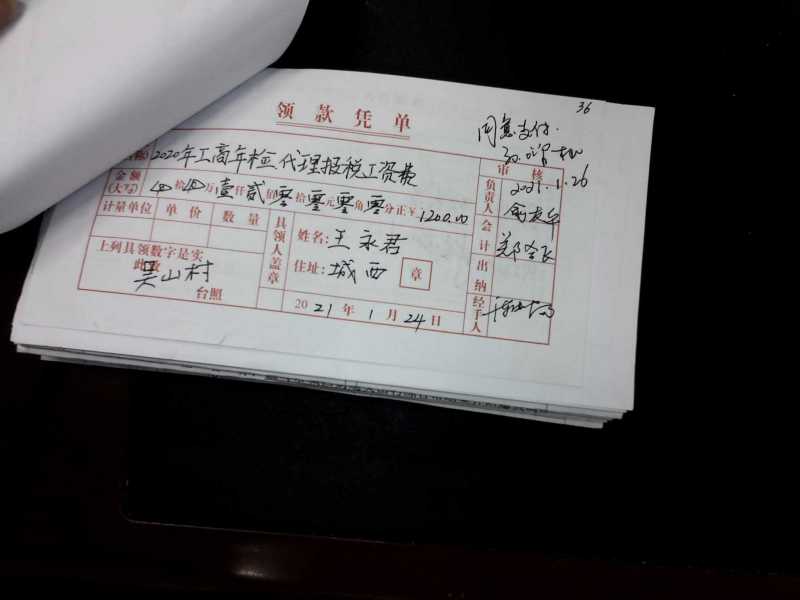 36
领款凭单
同意支付.
2021.1.26
2020年工商年检代理报税工资费
金额
(大写) 拾 万壹仟贰佰零拾零元零角零分正¥1200.00
计量单位 单价 数量
上列具领数字是实
此致
吴山村
台照
具领人盖章
姓名:王永君
住址:城西 章
2021年1月24日
审核
负责人
会计
出纳
经手人